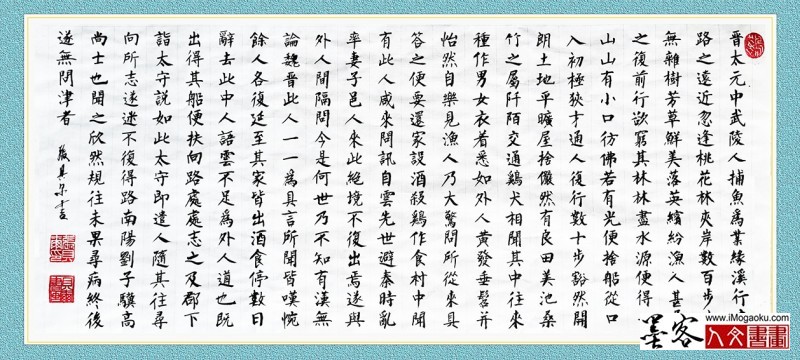 晉太元中武陵人捕魚爲業緣溪行
路之遠近忽逢桃花林夾岸數百步
無雜樹芳草鮮美落英繽紛漁人甚
之後前行欲窮其林林盡水源便得
山山有小口彷彿若有光便捨船從口
入初極狹才通人復行數十步豁然開
朗土地平曠屋捨儼然有良田美池桑
竹之屬阡陌交通鷄犬相聞其中往來
種作男女衣着悉如外人黃發垂髫并
怡然自樂見漁人乃大驚問所從來具
答之便要還家設酒殺鷄作食村中聞
有此人咸來問訊自雲先世避秦時亂
率妻子邑人來此絕境不復出焉遂與
外人間隔問今是何世乃不知有漢無
論魏晉此人一一爲具言所聞皆嘆惋
餘人各復延至其家皆出酒食停數日
辭去此中人語雲不足爲外人道也既
出得其船便扶向路處處志之及郡下
詣太守說如此太守即遣人隨其往尋
向所志遂迷不復得路南陽劉子驥高
尚士也聞之欣然規往未果尋病終後
遂無問津者
www.iMogaoku.com
墨客
人文書畫